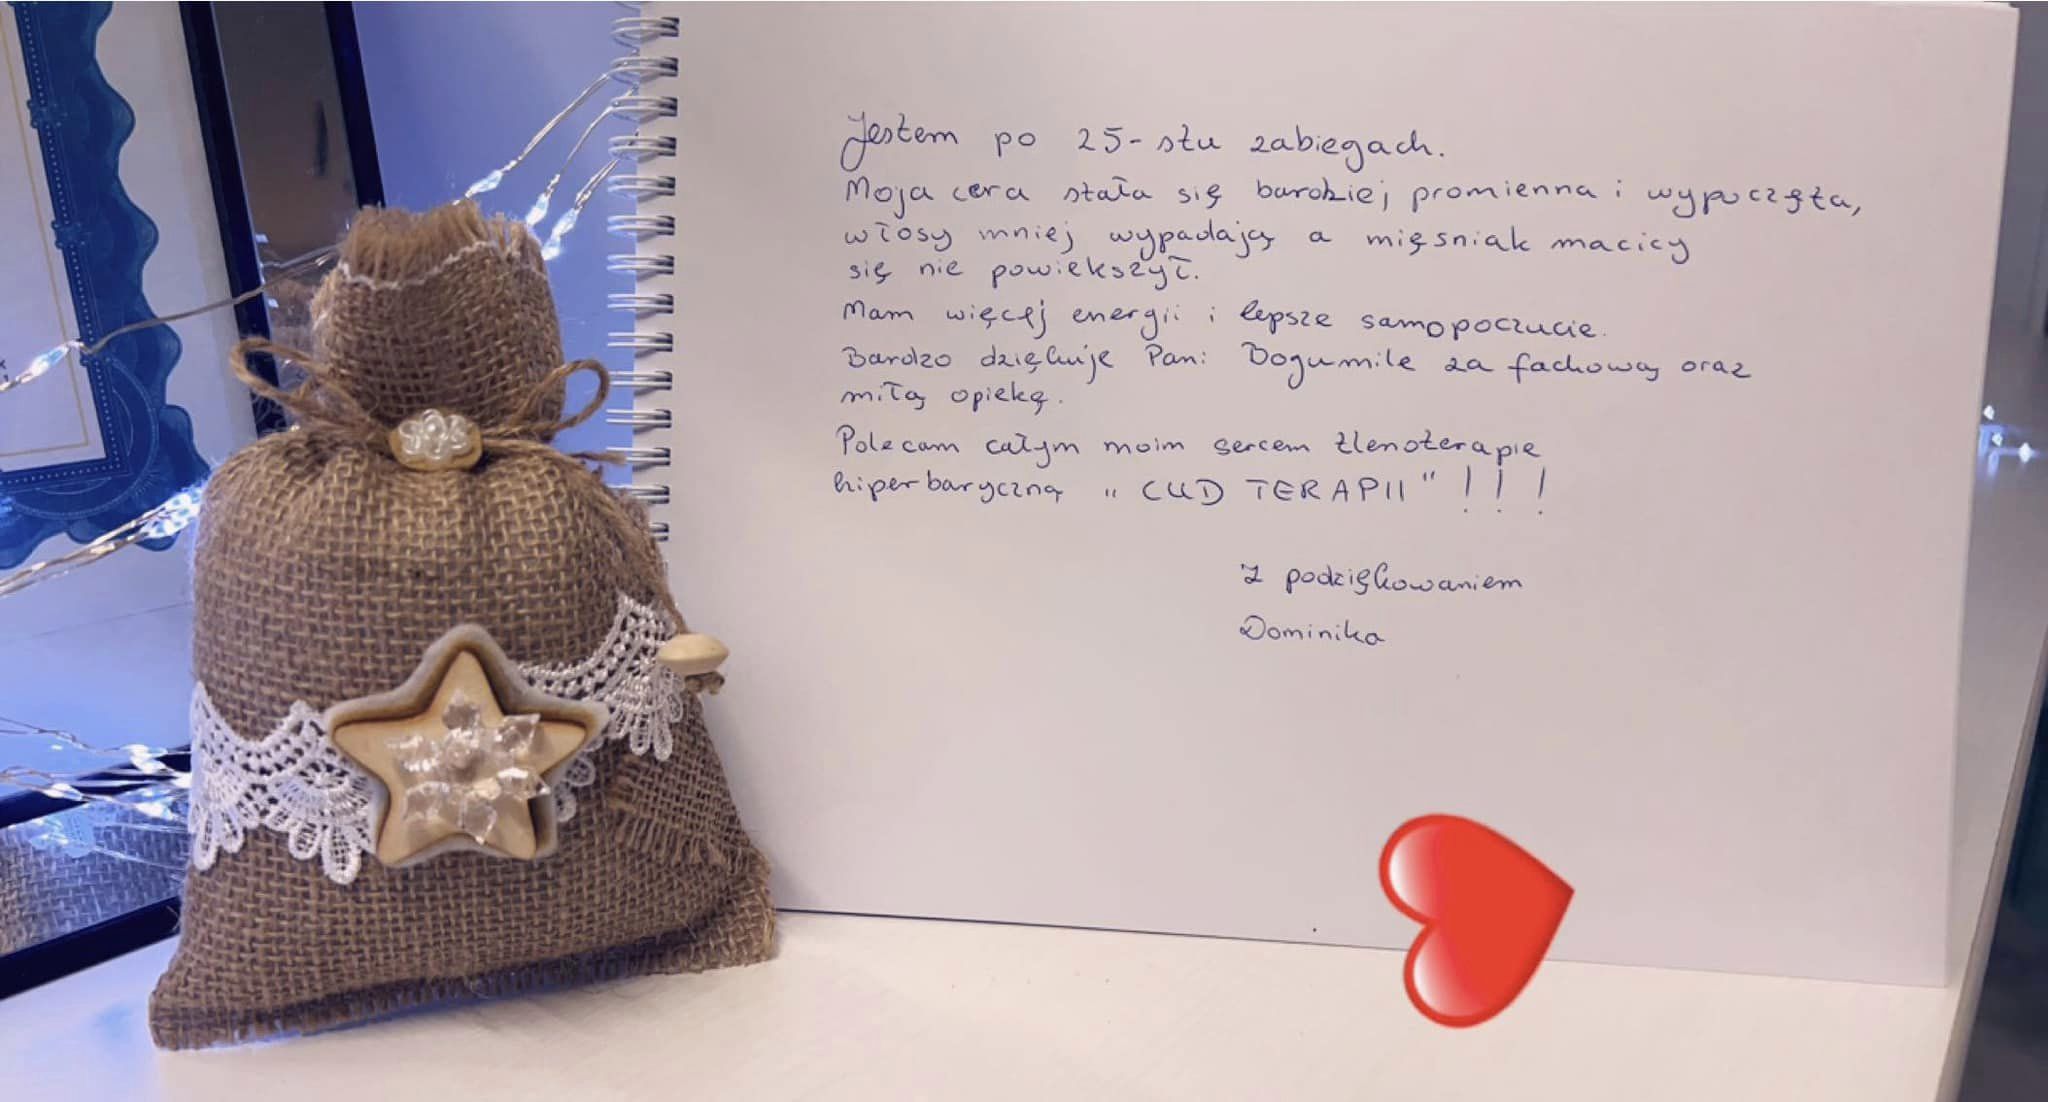 Jestem po 25-stu zabiegach.
Moja cera stała się bardziej promienna i wypoczęta,
włosy mniej wypadają a mięśniak macicy
się nie powiększył.
Mam więcej energii i lepsze samopoczucie.
Bardzo dziękuje Pani Bogumile za fachową oraz
miłą opiekę.
Polecam całym moim sercem tlenoterapie
hiperbaryczną "CUD TERAPII"!!!
Z podziękowaniem
Dominika